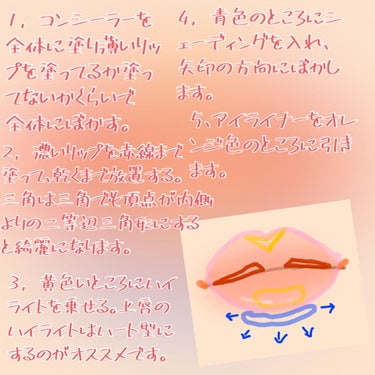 1, コンシーラーを
全体に塗り薄いリッ
プを塗ってるか塗っ
てないかくらいで
全体にぼかす。
2, 濃いリップを赤線まで
塗って、乾くまで放置する。
三角は三角でも頂点が内側
よりの二等辺三角形にする
と綺麗になります。
3, 黄色いところにハイ
ライトを乗せる。上唇の
ハイライトはハート型に
するのがオススメです。
4, 青色のところにシ
ェーディングを入れ、
矢印の方向にぼかし
ます。
5, アイライナーをオレ
ンジ色のところに引き
ます。